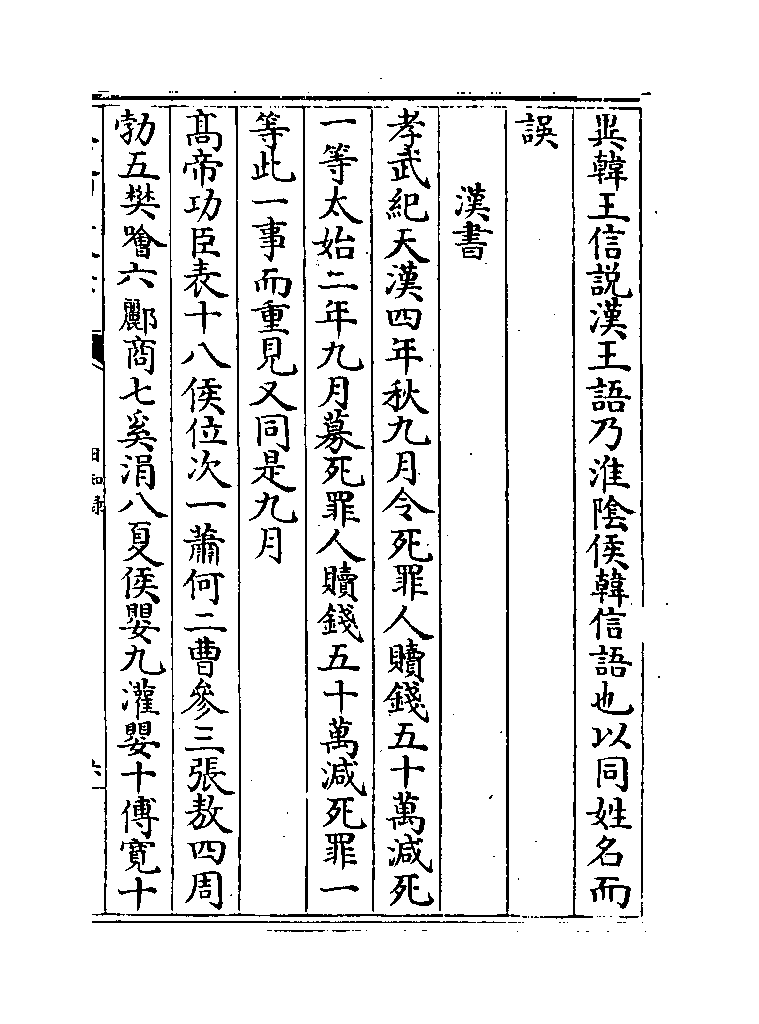 異韓王信説漢王語乃淮陰侯韓信語也以同姓名而
誤
漢書
孝武紀天漢四年秋九月令死罪人贖錢五十萬減死
一等太始二年九月募死罪人贖錢五十萬減死罪一
等此一事而重見又同是九月
髙帝功臣表十八侯位次一蕭何二曹參三張敖四周
勃五樊噲六酈商七奚涓八夏侯嬰九灌嬰十傅寛十
日知録